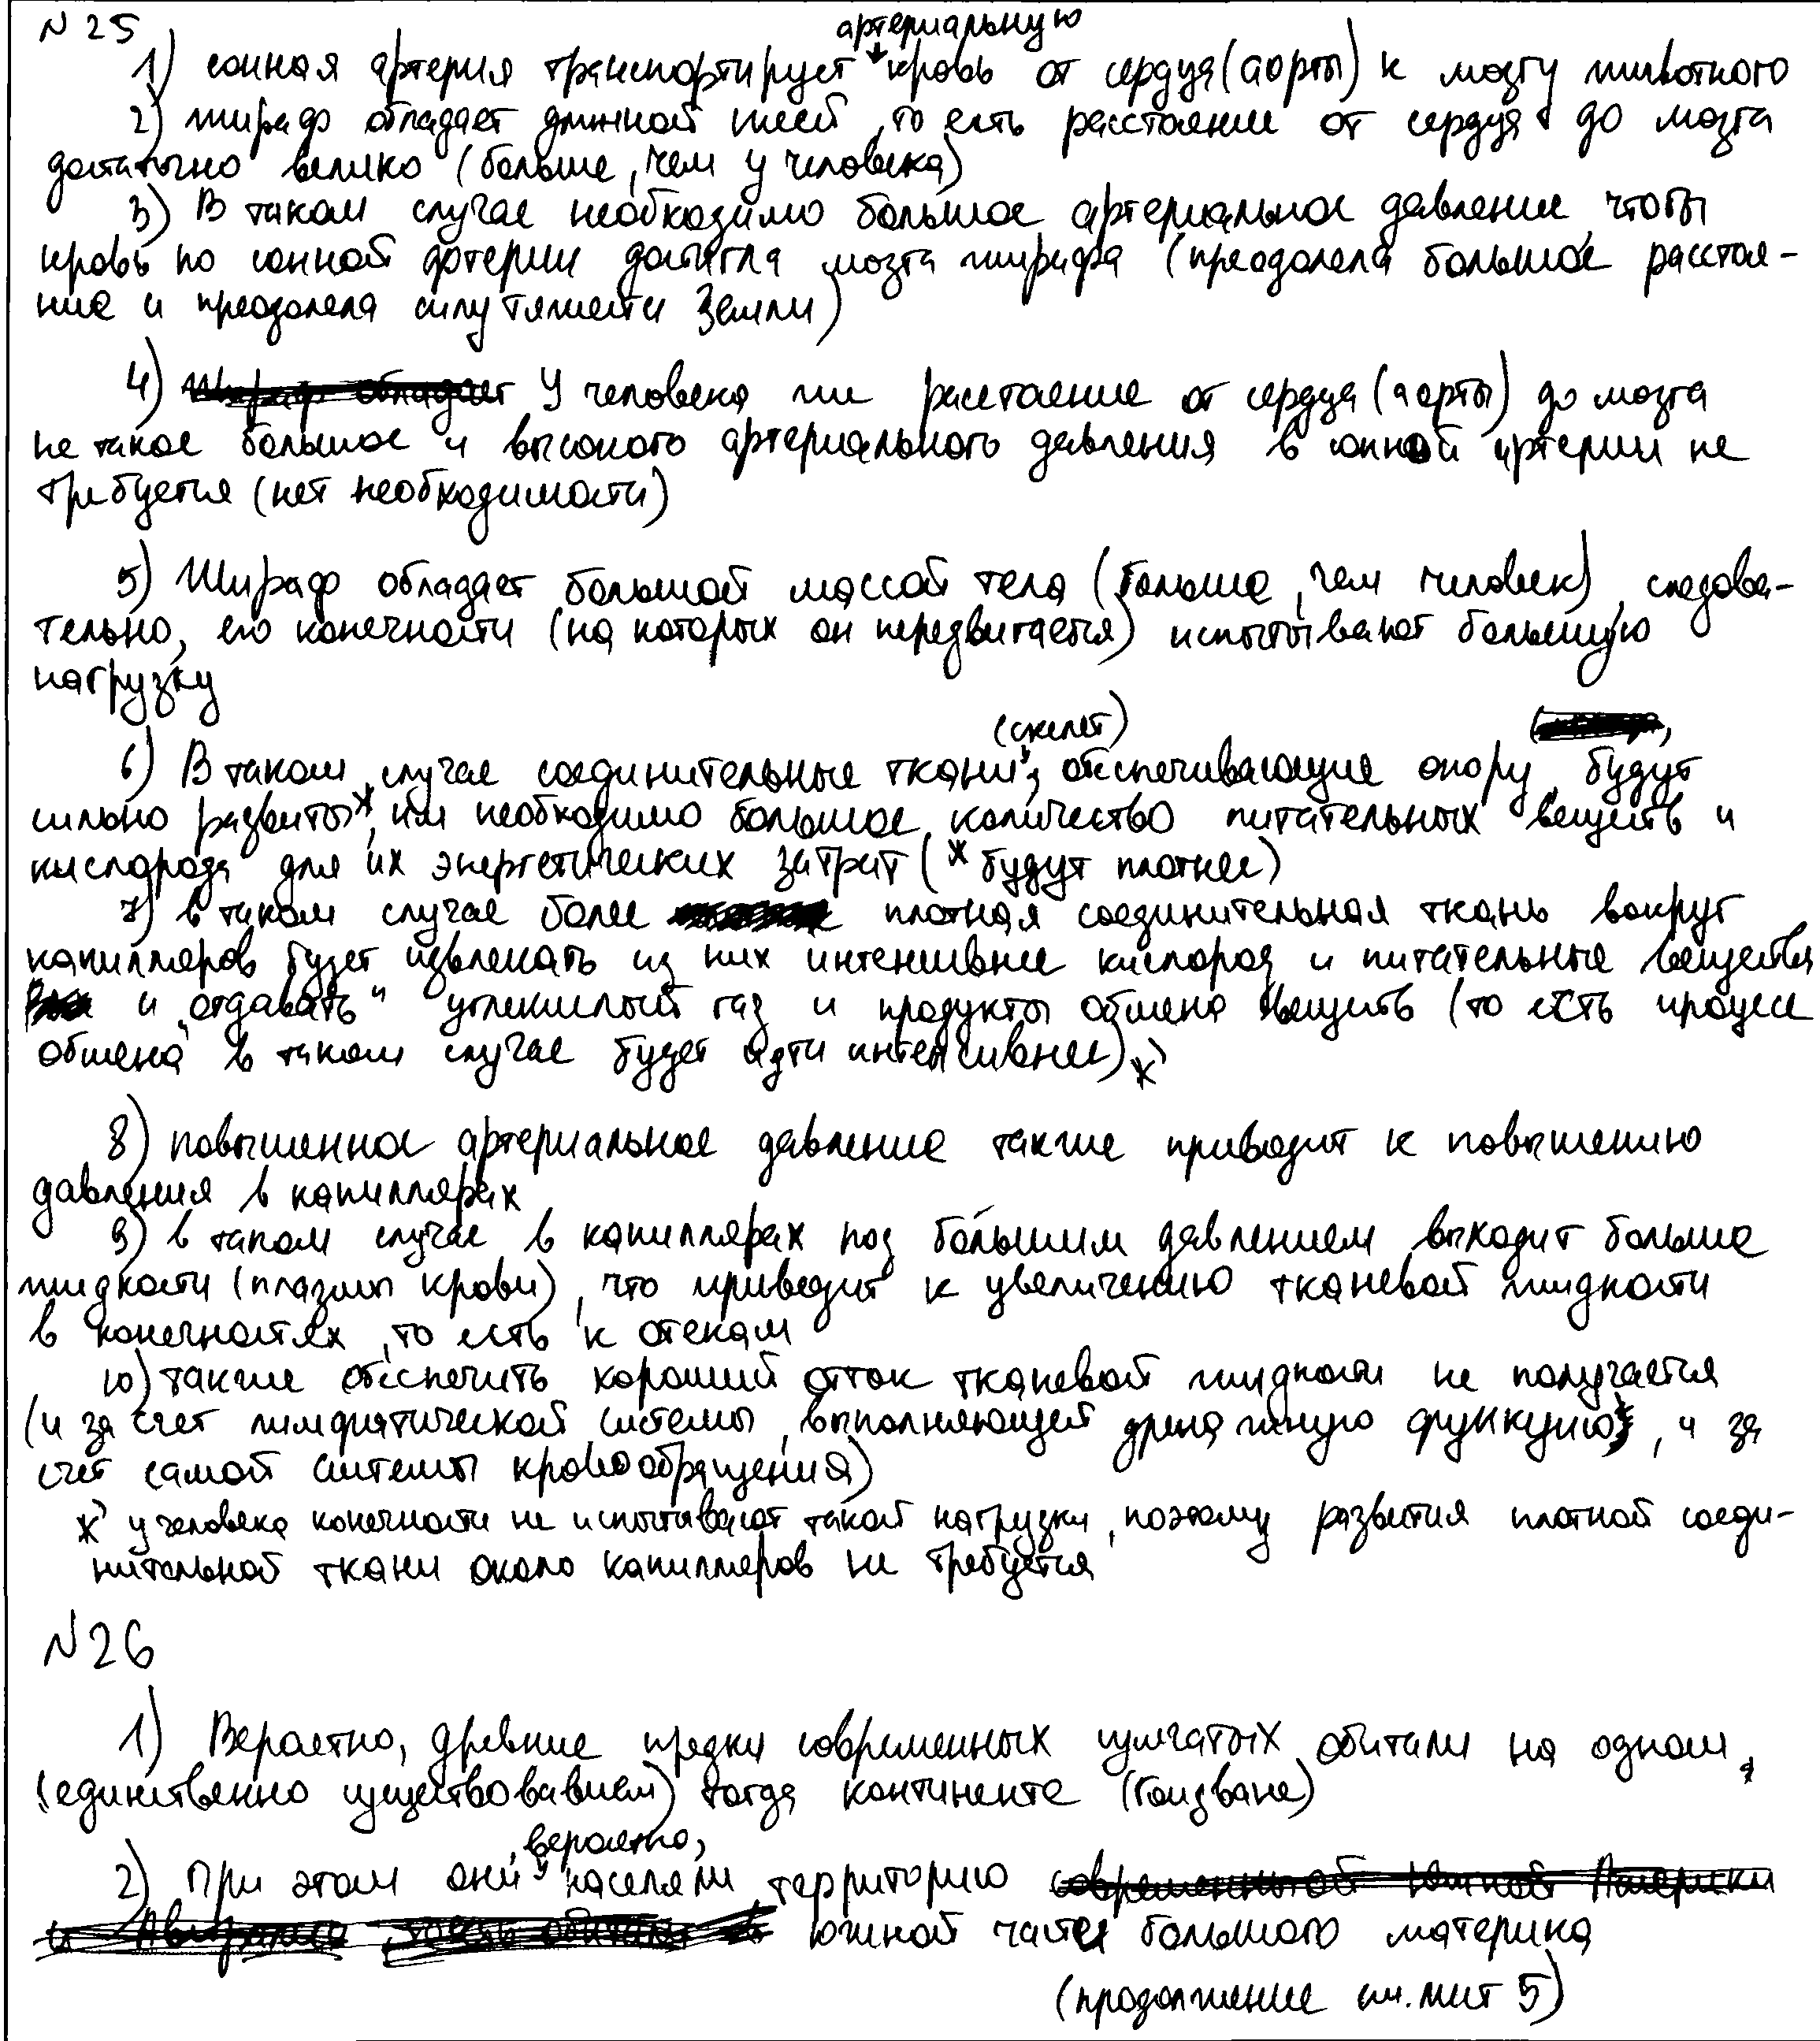 N 25
артериальную
1) сонная артерия транспортирует кровь от сердца (аорты) к мозгу животного
2) жираф обладает длинной шеей, то есть расстояние от сердца до мозга
достаточно велико (больше, чем у человека)
3) В таком случае необходимо большое артериальное давление, чтобы
кровь по сонной артерии достигла мозга жирафа (преодолела большое расстоя-
ние и преодолела силу тяжести Земли)
4) У человека же расстояние от сердца (аорты) до мозга
не такое большое и высокого артериального давления в сонной артерии не
требуется (нет необходимости)
5) Жираф обладает большой массой тела (больше, чем человек), следова-
тельно, его конечности (на которых он передвигается) испытывают большую
нагрузку
(скелет)
6) В таком случае соединительные ткани, обеспечивающие опору, будут
сильно развиты*, им необходимо большое количество питательных веществ и
кислорода для их энергетических затрат (* будут плотнее)
7) в таком случае более плотная соединительная ткань вокруг
капилляров будет извлекать из них интенсивнее кислород и питательные вещества
и „отдавать" углекислый газ и продукты обмена веществ (то есть процесс
обмена в таком случае будет идти интенсивнее) *'
8) повышенное артериальное давление также приводит к повышению
давления в капиллярах
9) в таком случае в капиллярах под большим давлением выходит больше
жидкости (плазмы крови), что приводит к увеличению тканевой жидкости
в конечностях, то есть к отекам
10) также обеспечить хороший отток тканевой жидкости не получается
(и за счет лимфатической системы, выполняющей дренажную функцию, и за
счет самой системы кровообращения)
*' у человека конечности не испытывают такой нагрузки, поэтому развития плотной соеди-
нительной ткани около капилляров не требуется
N 26
1) Вероятно, древние предки современных сумчатых обитали на одном
(единственно существовавшем) тогда континенте (Гондване)
, вероятно,
2) При этом они населяли территорию
южной части большого материка
(продолжение см. лист 5)